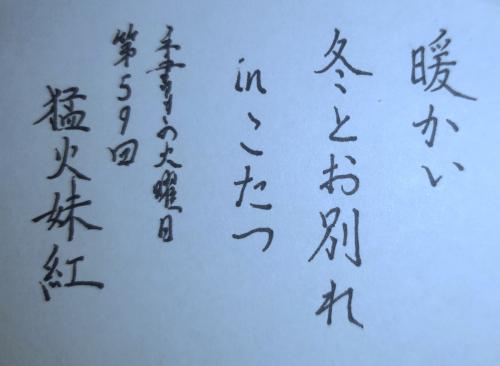 暖かい
冬とお別れ
inこたつ
手書きの火曜日
第59回
猛火妹紅